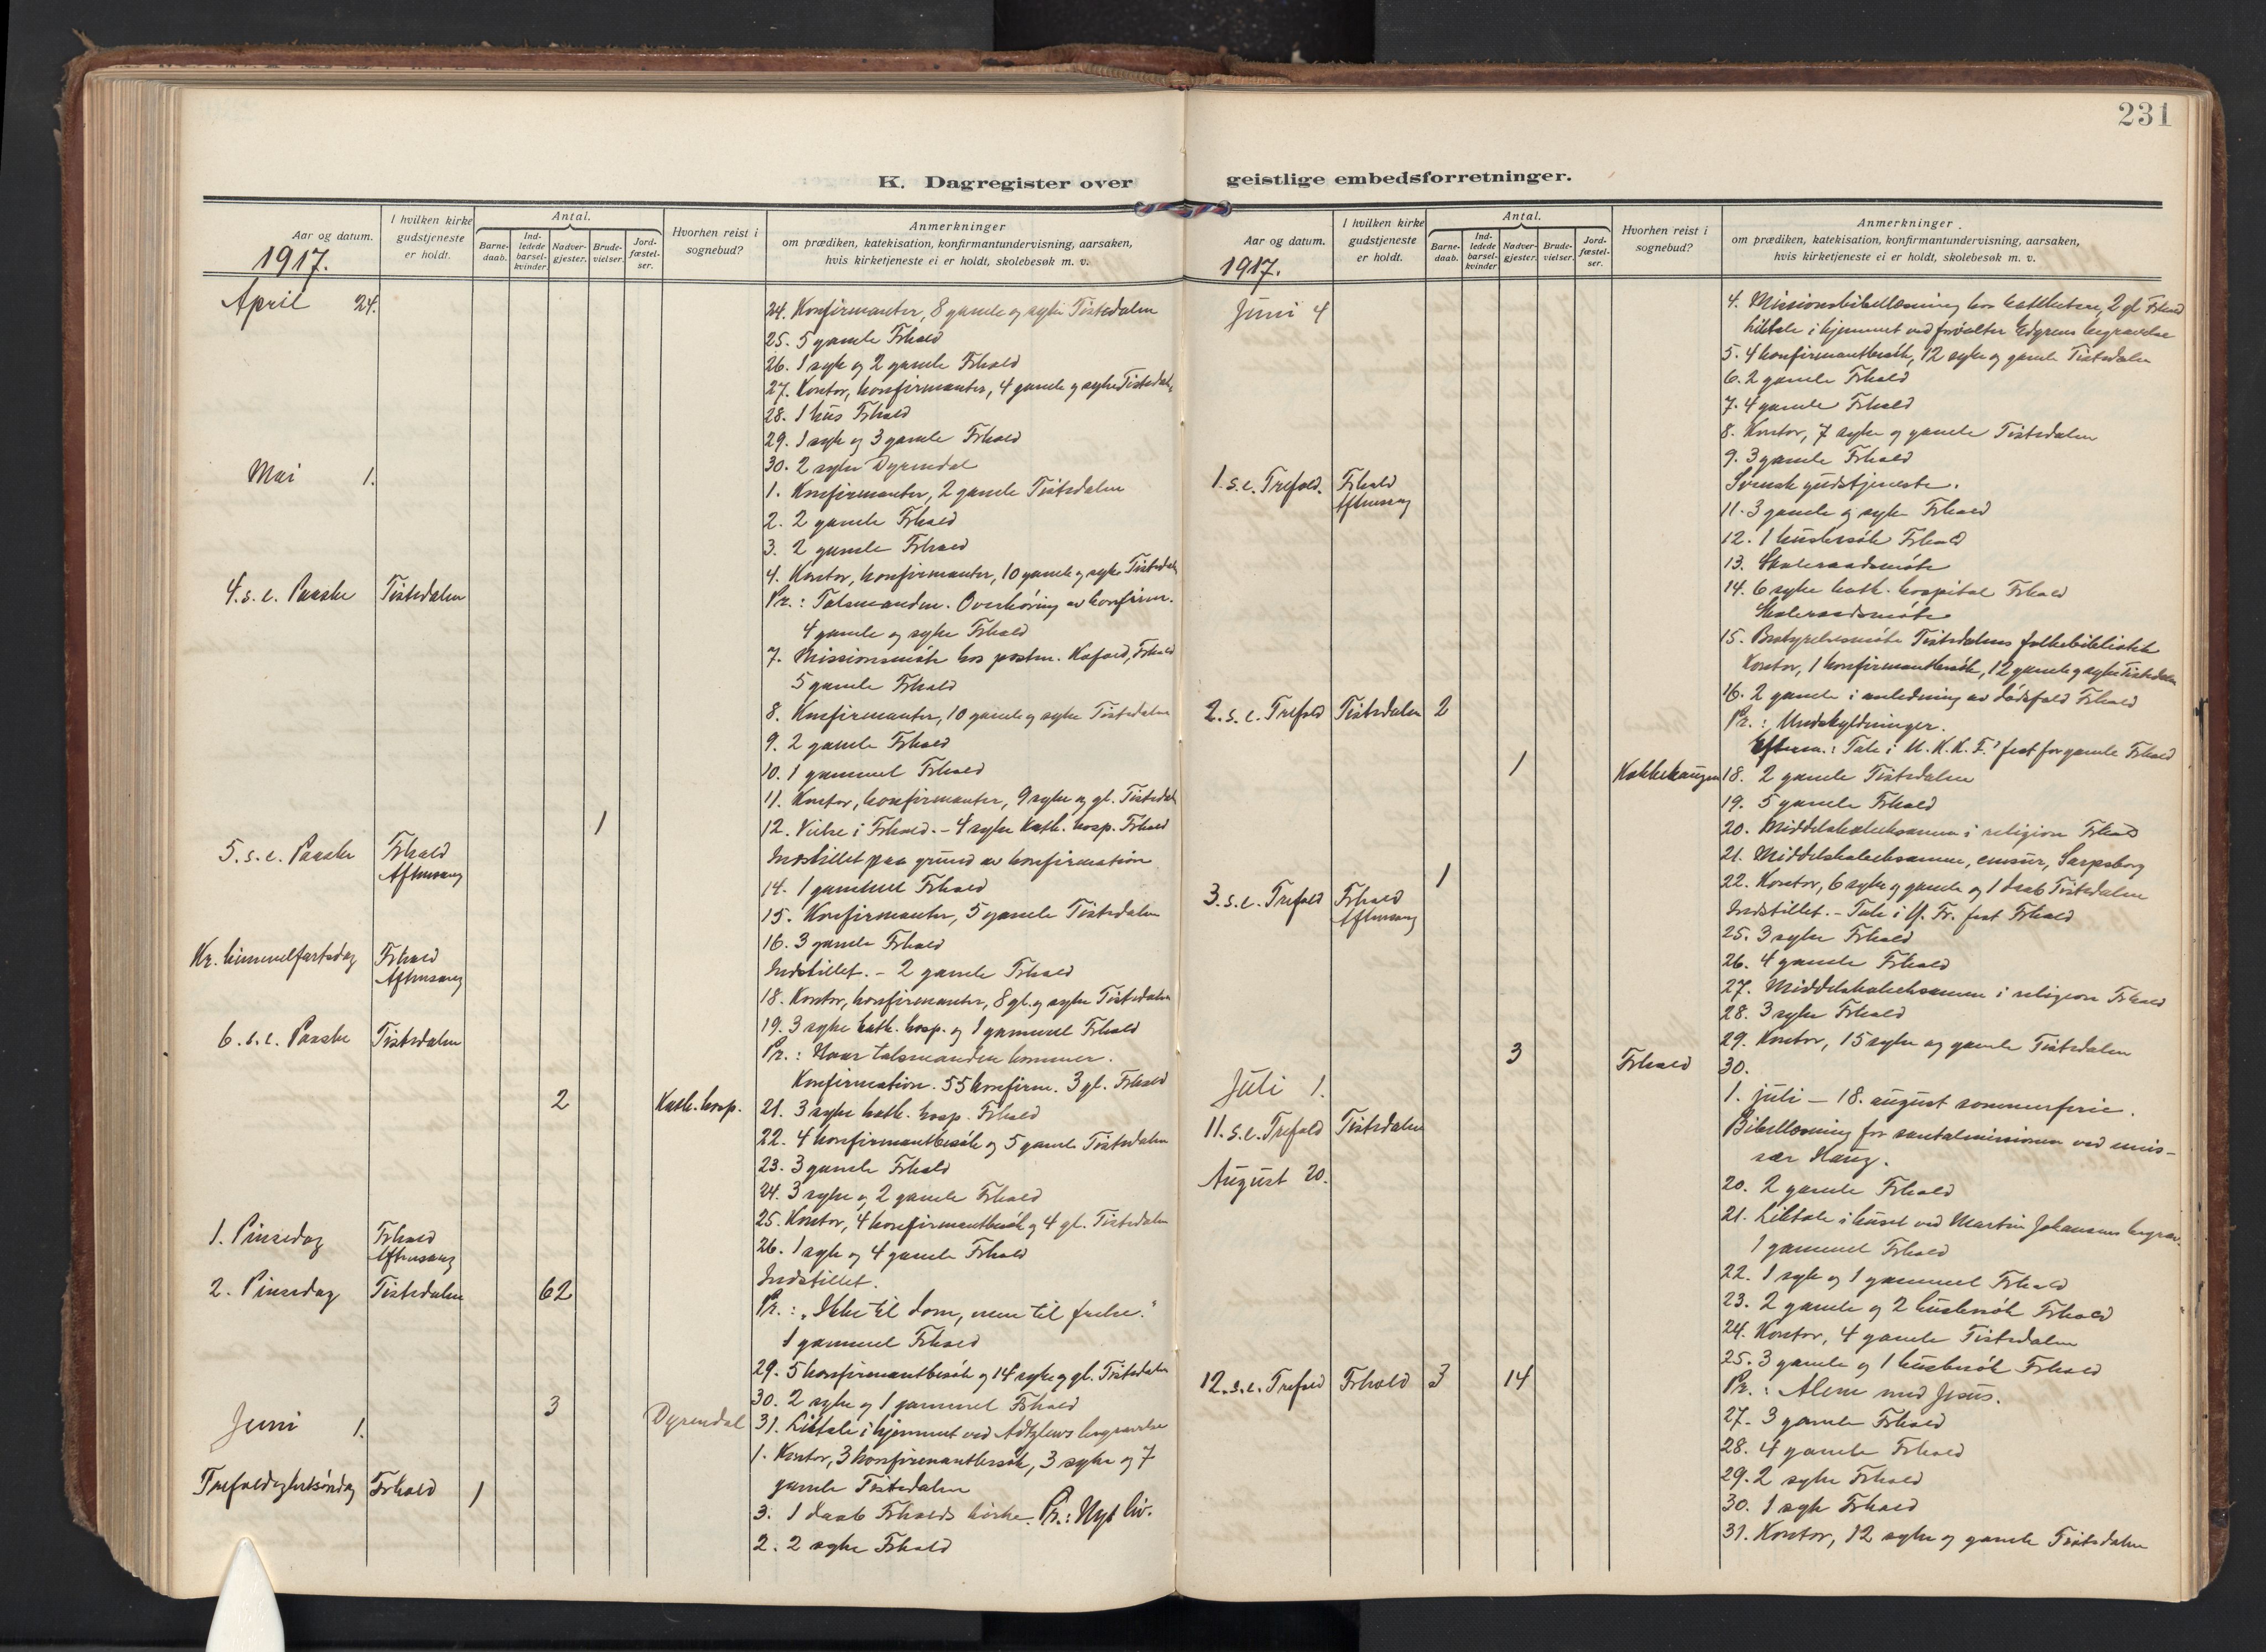 231
K. Dagregister over
Aar og datum.
1917.
I hvilken kirke
gudstjeneste
er holdt.
Antal.
Barne-
daab.
Ind-
ledede
barsel-
kvinder.
Nadver-
gjester.
Brude-
vielser.
Jord-
fæstel-
ser.
Hvorhen reist i
sognebud?
Anmerkninger
om prædiken, katekisation, konfirmantundervisning, aarsaken,
hvis kirketjeneste ei er holdt, skolebesøk m. v.
April 24. 24. Konfirmanter, 8 gamle og syke Tistedalen
25. 5 gamle Frhald
26. 1 syk og 2 gamle Frhald
27. Kontor, konfirmanter, 4 gamle og syke Tistedal.
28. 1 hus Frhald
29. 1 syk og 3 gamle Frhald
30. 2 syke Dyrendal
Mai 1. 1. Konfirmanter, 2 gamle Tistedalen
2. 2 gamle Frhald
3. 2 gamle Frhald
4. Kontor, konfirmanter, 10 gamle og syke Tistedal
4. s. e. Paaske Tistedalen Pr.: Talsmanden. Overhøring av konfirm.
4 gamle og syke Frhald
7. Missionsmøte hos postm. Kafoed, Frhald
5 gamle Frhald
8. Konfirmanter, 10 gamle og syke Tistedalen
9. 2 gamle Frhald
10. 1 gammel Frhald
11. Kontor, konfirmanter, 9 syke og gl. Tistedal
1 12. Vielse i Frhald. - 4 syke Kath. hosp. Frhald
5. s. e. Paaske Frhald Aftensang Indstillet paa grund av konfirmation
14. 1 gammel Frhald
15. Konfirmanter, 5 gamle Tistedalen
16. 3 gamle Frhald
Kr. himmelfartsdag Frhald Aftensang Indstillet. - 2 gamle Frhald
18. Kontor, konfirmanter, 8 gl. og syke Tistedalen
19. 3 syke kath. hosp. og 1 gammel Frhald
6. s. e. Paaske Tistedalen Pr.: Naar talsmanden kommer.
Konfirmation. 55 konfirm. 3 gl. Frhald
2 Kath. hosp. 21. 3 syke kath. hosp. Frhald
22. 4 konfirmantbesøk og 5 gamle Tistedalen
23. 3 gamle Frhald
24. 3 syke og 2 gamle Frhald
25. Kontor, 4 konfirmantbesøk og 4 gl. Tistedalen
26. 1 syk og 4 gamle Frhald
1. Pinsedag Frhald Aftensang Indstillet.
2. Pinsedag Tistedalen 62 Pr.: "Ikke til dom, men til frelse."
1 gammel Frhald
29. 5 konfirmantbesøk og 14 syke og gl. Tistedalen
30. 2 syke og 1 gammel Frhald
3 Dyrendal 31. Liktale i hjemmet ved begravelse
Juni 1. 1. Kontor, 3 konfirmantbesøk, 3 syke og 7
gamle Tistedalen
Trefoldighetsøndag Frhald 1 3. 1 daab Frhalds kirke. Pr.: Nyt liv.
2. 2 syke Frhald
geistlige embedsforretninger.
Aar og datum.
1917.
I hvilken kirke
gudstjeneste
er holdt.
Antal.
Barne-
daab.
Ind-
ledede
barsel-
kvinder
Nadver-
gjester.
Brude-
vielser.
Jord-
fæstel-
ser.
Hvorhen reist i
sognebud?
Anmerkninger.
om prædiken, katekisation, konfirmantundervisning, aarsaken,
hvis kirketjeneste ei er holdt, skolebesøk m. v.
Juni 4 4. Missionsbibellæsning hos 2 gl. Frhald
Liktale i hjemmet ved forvalter begravelse
5. 4 konfirmantbesøk, 12 syke og gamle Tistedalen
6. 2 gamle Frhald
7. 4 gamle Frhald
8. Kontor, 7 syke og gamle Tistedalen
9. 3 gamle Frhald
1. s. e. Trefold. Frhald Aftensang Svensk gudstjeneste.
11. 3 gamle og syke Frhald
12. 1 husbesøk Frhald
13. Skoleraadsmøte
14. 6 syke kath. hospital Frhald
Skoleraadsmøte
15. Bestyrelsesmøte Tistedalens folkebibliotek
Kontor, 1 konfirmantbesøk, 12 gamle og syke Tistedalen
16. 2 gamle i anledning av dødsfald Frhald
2. s. e. Trefold Tistedalen 2 Pr.: Undskyldninger.
Efterm.: Tale i U. K. K. F.' fest for gamle Frhald
1 Kakkehaugen 18. 2 gamle Tistedalen
19. 5 gamle Frhald
20. Middelskoleeksamen i religion Frhald
21. Middelskoleeksamen, censur, Sarpsborg
1 22. Kontor, 6 syke og gamle og 1 daab Tistedalen
3. s. e. Trefold Frhald Aftensang Indstillet. - Tale i fest Frhald
25. 3 syke Frhald
26. 4 gamle Frhald
27. Middelskoleeksamen i religion Frhald
28. 3 syke Frhald
29. Kontor, 15 syke og gamle Tistedalen
3 Frhald 30.
Juli 1. 1. juli - 18. august sommerferie.
11. s. e. Trefold Tistedalen Bibellæsning for santalmissionen ved emis-
sær Haug.
August 20. 20. 2 gamle Frhald
21. Liktale i huset ved Martin Johansens begrav.
1 gammel Frhald
22. 1 syk og 1 gammel Frhald
23. 2 gamle og 2 husbesøk Frhald
24. Kontor, 4 gamle Tistedalen
25. 3 gamle og 1 husbesøk Frhald
12. s. e. Trefold Frhald 3 14 Pr.: Alene med Jesus.
27. 3 gamle Frhald
28. 4 gamle Frhald
29. 2 syke Frhald
30. 1 syk Frhald
31. Kontor, 12 syke og gamle Tistedalen